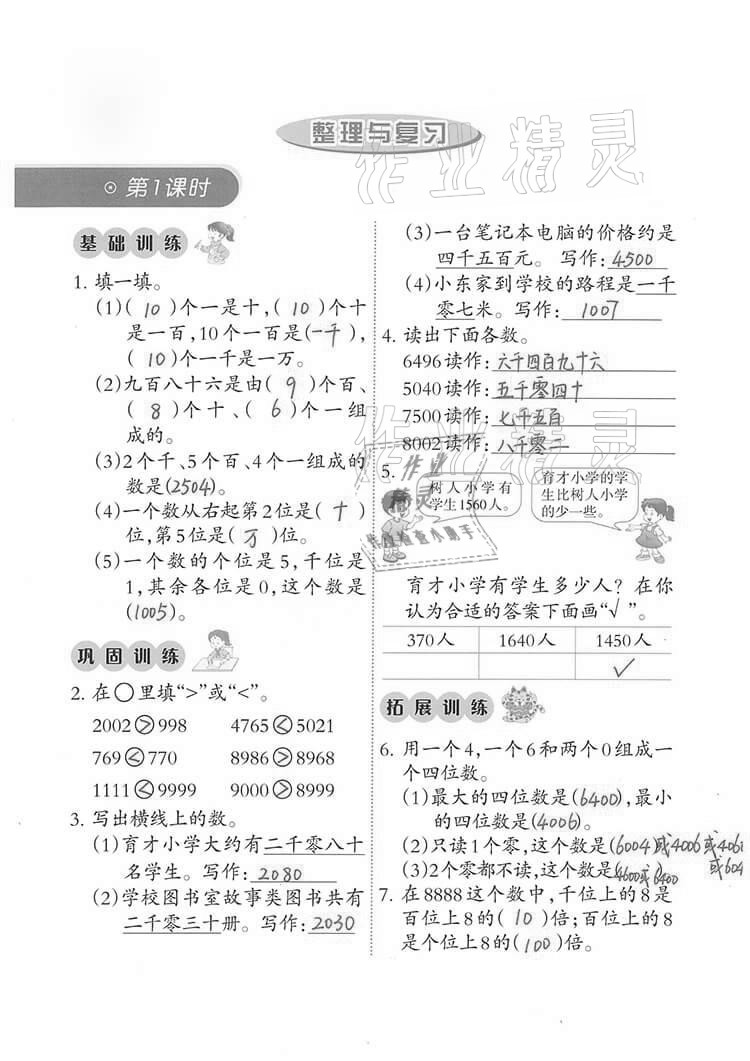 整理与复习
第1课时
基础训练
1. 填一填。
(1)( 10 )个一是十,( 10 )个十
是一百,10个一百是(一千),
( 10 )个一千是一万。
(2)九百八十六是由( 9 )个百、
( 8 )个十、( 6 )个一组
成的。
(3)2个千、5个百、4个一组成的
数是(2504)。
(4)一个数从右起第2位是( 十 )
位,第5位是( 万 )位。
(5)一个数的个位是5,千位是
1,其余各位是0,这个数是
(1005)。
巩固训练
2. 在○里填“>”或“<”。
2002>998 4765<5021
769<770 8986>8968
1111<9999 9000>8999
3. 写出横线上的数。
(1)育才小学大约有二千零八十
名学生。写作: 2080
(2)学校图书室故事类图书共有
二千零三十册。写作: 2030
(3)一台笔记本电脑的价格约是
四千五百元。写作: 4500
(4)小东家到学校的路程是一千
零七米。写作: 1007
4. 读出下面各数。
6496读作: 六千四百九十六
5040读作: 五千零四十
7500读作: 七千五百
8002读作: 八千零二
5.
树人小学有
学生1560人。
育才小学的学
生比树人小学
的少一些。
育才小学有学生多少人?在你
认为合适的答案下面画“√”。
370人 1640人 1450人
✓
拓展训练
6. 用一个4,一个6和两个0组成一
个四位数。
(1)最大的四位数是(6400),最小
的四位数是(4006)。
(2)只读1个零,这个数是(6004或4006或406
或604
(3)2个零都不读,这个数是(4600或6400
7. 在8888这个数中,千位上的8是
百位上8的( 10 )倍;百位上的8
是个位上8的(100)倍。
作业精灵
作业精灵
作业
精灵